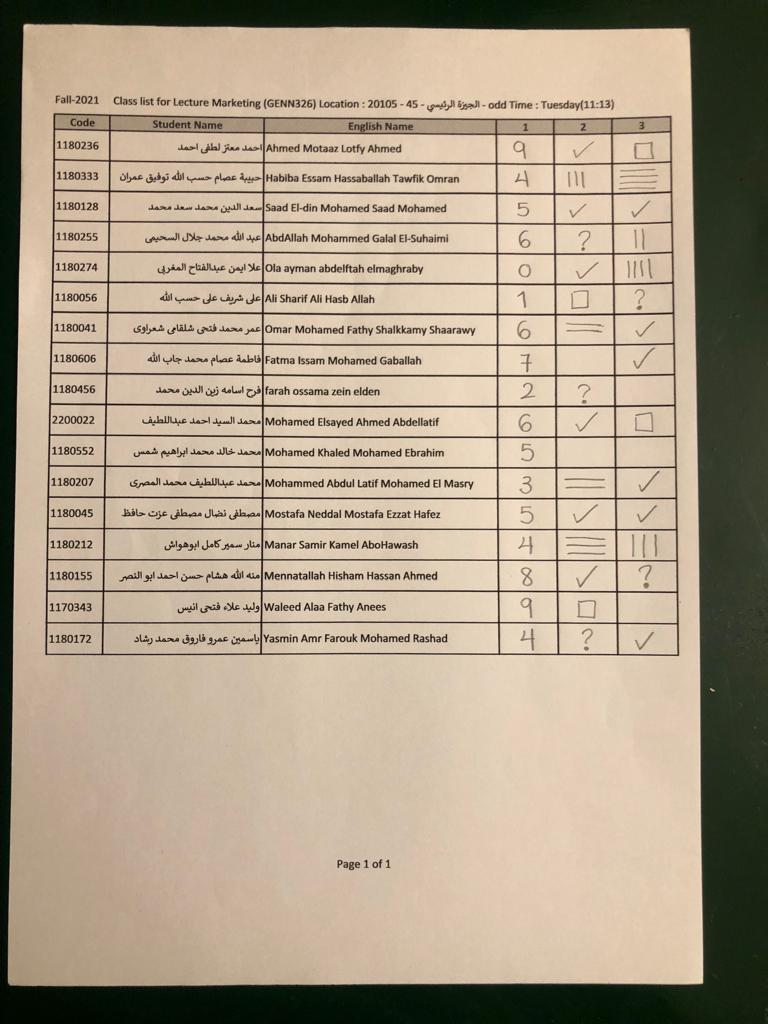 Fall-2021 Class list for Lecture Marketing (GENN326) Location : 20105 - 45 - الجيزة الرئيسي - odd Time : Tuesday(11:13)
Code Student Name English Name 1 2 3
1180236 احمد معتز لطفى احمد Ahmed Motaaz Lotfy Ahmed 9 ✓ □
1180333 حبيبة عصام حسب الله توفيق عمران Habiba Essam Hassaballah Tawfik Omran 4 ||| ☰
1180128 سعد الدين محمد سعد محمد Saad El-din Mohamed Saad Mohamed 5 ✓ ✓
1180255 عبد الله محمد جلال السحيمى AbdAllah Mohammed Galal El-Suhaimi 6 ? ||
1180274 علا ايمن عبدالفتاح المغربي Ola ayman abdelftah elmaghraby 0 ✓ ||||
1180056 على شريف على حسب الله Ali Sharif Ali Hasb Allah 1 □ ?
1180041 عمر محمد فتحى شلقامى شعراوى Omar Mohamed Fathy Shalkkamy Shaarawy 6 = ✓
1180606 فاطمة عصام محمد جاب الله Fatma Issam Mohamed Gaballah 7 ✓
1180456 فرح اسامه زين الدين محمد farah ossama zein elden 2 ?
2200022 محمد السيد احمد عبداللطيف Mohamed Elsayed Ahmed Abdellatif 6 ✓ □
1180552 محمد خالد محمد ابراهيم شمس Mohamed Khaled Mohamed Ebrahim 5
1180207 محمد عبداللطيف محمد المصرى Mohammed Abdul Latif Mohamed El Masry 3 = ✓
1180045 مصطفى نضال مصطفى عزت حافظ Mostafa Neddal Mostafa Ezzat Hafez 5 ✓ ✓
1180212 منار سمير كامل ابوهواش Manar Samir Kamel AboHawash 4 ≡ |||
1180155 منه الله هشام حسن احمد ابو النصر Mennatallah Hisham Hassan Ahmed 8 ✓ ?
1170343 وليد علاء فتحى انيس Waleed Alaa Fathy Anees 9 □
1180172 ياسمين عمرو فاروق محمد رشاد Yasmin Amr Farouk Mohamed Rashad 4 ? ✓
Page 1 of 1